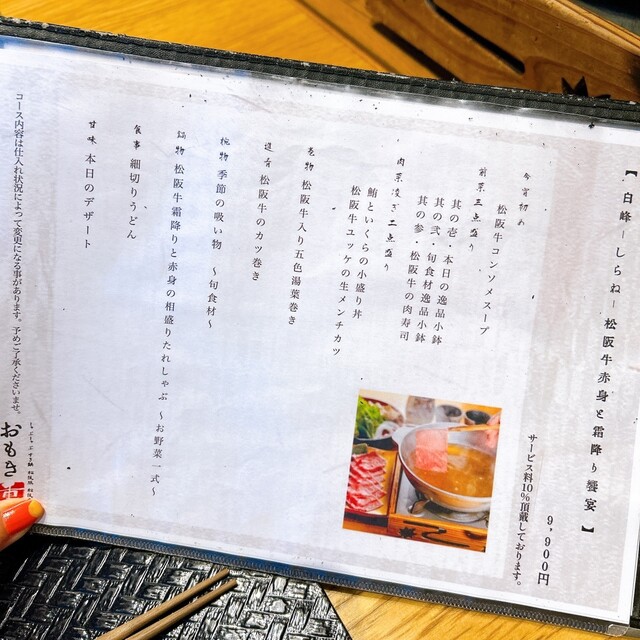 【白峰－しらね－松阪牛赤身と霜降り饗宴】
9,900円
サービス料10％頂戴しております。
今宵初め
松阪牛コンソメスープ
前菜三点盛り
其の壱・本日の逸品小鉢
其の弐・旬食材逸品小鉢
其の参・松阪牛の肉寿司
肉茶漬ぎ二点盛り
鮪といくらの小盛り丼
松阪牛ユッケの生メンチカツ
巻物 松阪牛入り五色湯葉巻き
進肴 松阪牛のカツ巻き
椀物 季節の吸い物 ～旬食材～
鍋物 松阪牛霜降りと赤身の相盛りたれしゃぶ ～お野菜一式～
食事 細切りうどん
甘味 本日のデザート
コース内容は仕入れ状況によって変更になる事があります。予めご了承くださいませ。
おもき